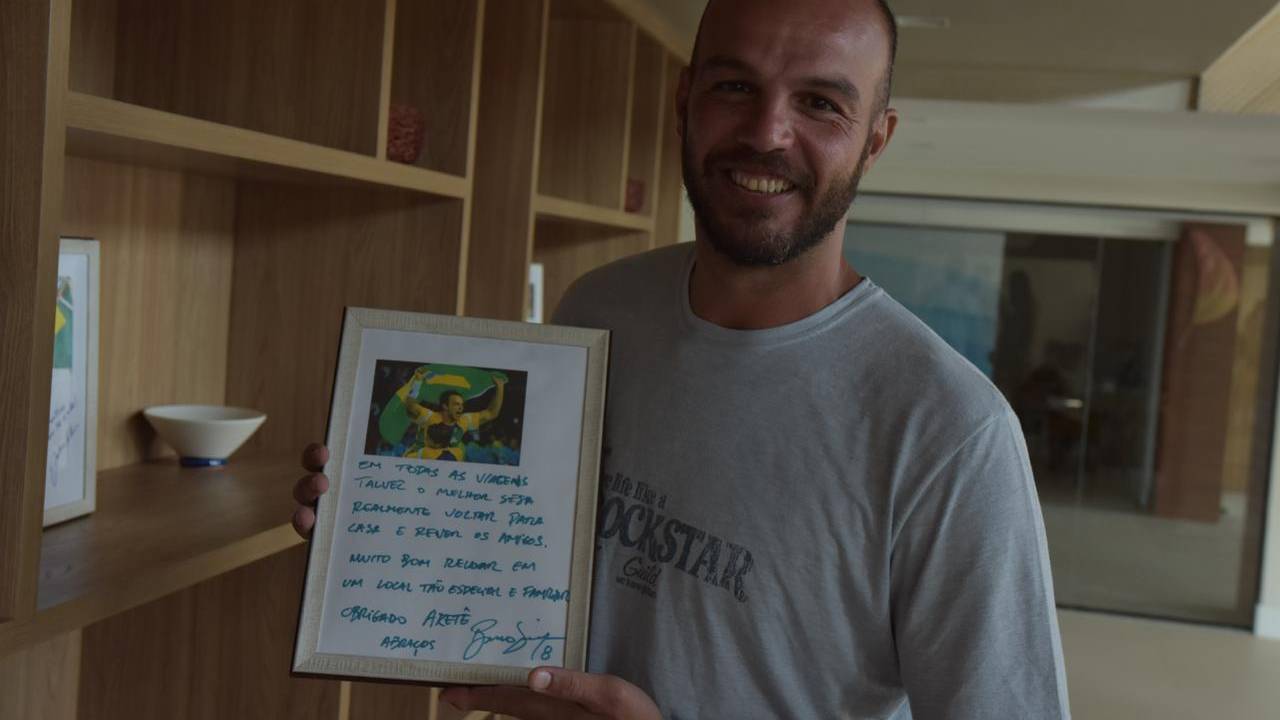 EM TODAS AS VIAGENS
TALVEZ O MELHOR SEJA
REALMENTE VOLTAR PARA
CASA E REVER OS AMIGOS.
MUITO BOM RELAXAR EM
UM LOCAL TÃO ESPECIAL E FAMILIAR
OBRIGADO ARETÊ
ABRAÇOS
8
life like a
OCKSTAR
Guild